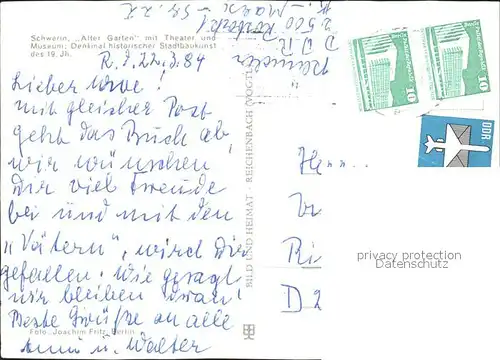 Schwerin, „Alter Garten" mit Theater und
Museum; Denkmal historischer Stadtbaukunst
des 19. Jh.
R. d. 22.3.84
Lieber Uwe!
Mit gleicher Post
geht das Buch ab,
wir wünschen
Dir viel Freude
bei und mit den
„Vätern", wird Dir
gefallen. Wie gesagt
wir bleiben dran!
Beste Grüße an alle
u. Walter
Foto: Joachim Fritz, Berlin
BILD UND HEIMAT · REICHENBACH (VOGTL)
2500 Rostock 1
D D R
10
10
DDR
Herrn
Ri
D 2
privacy protection
Datenschutz